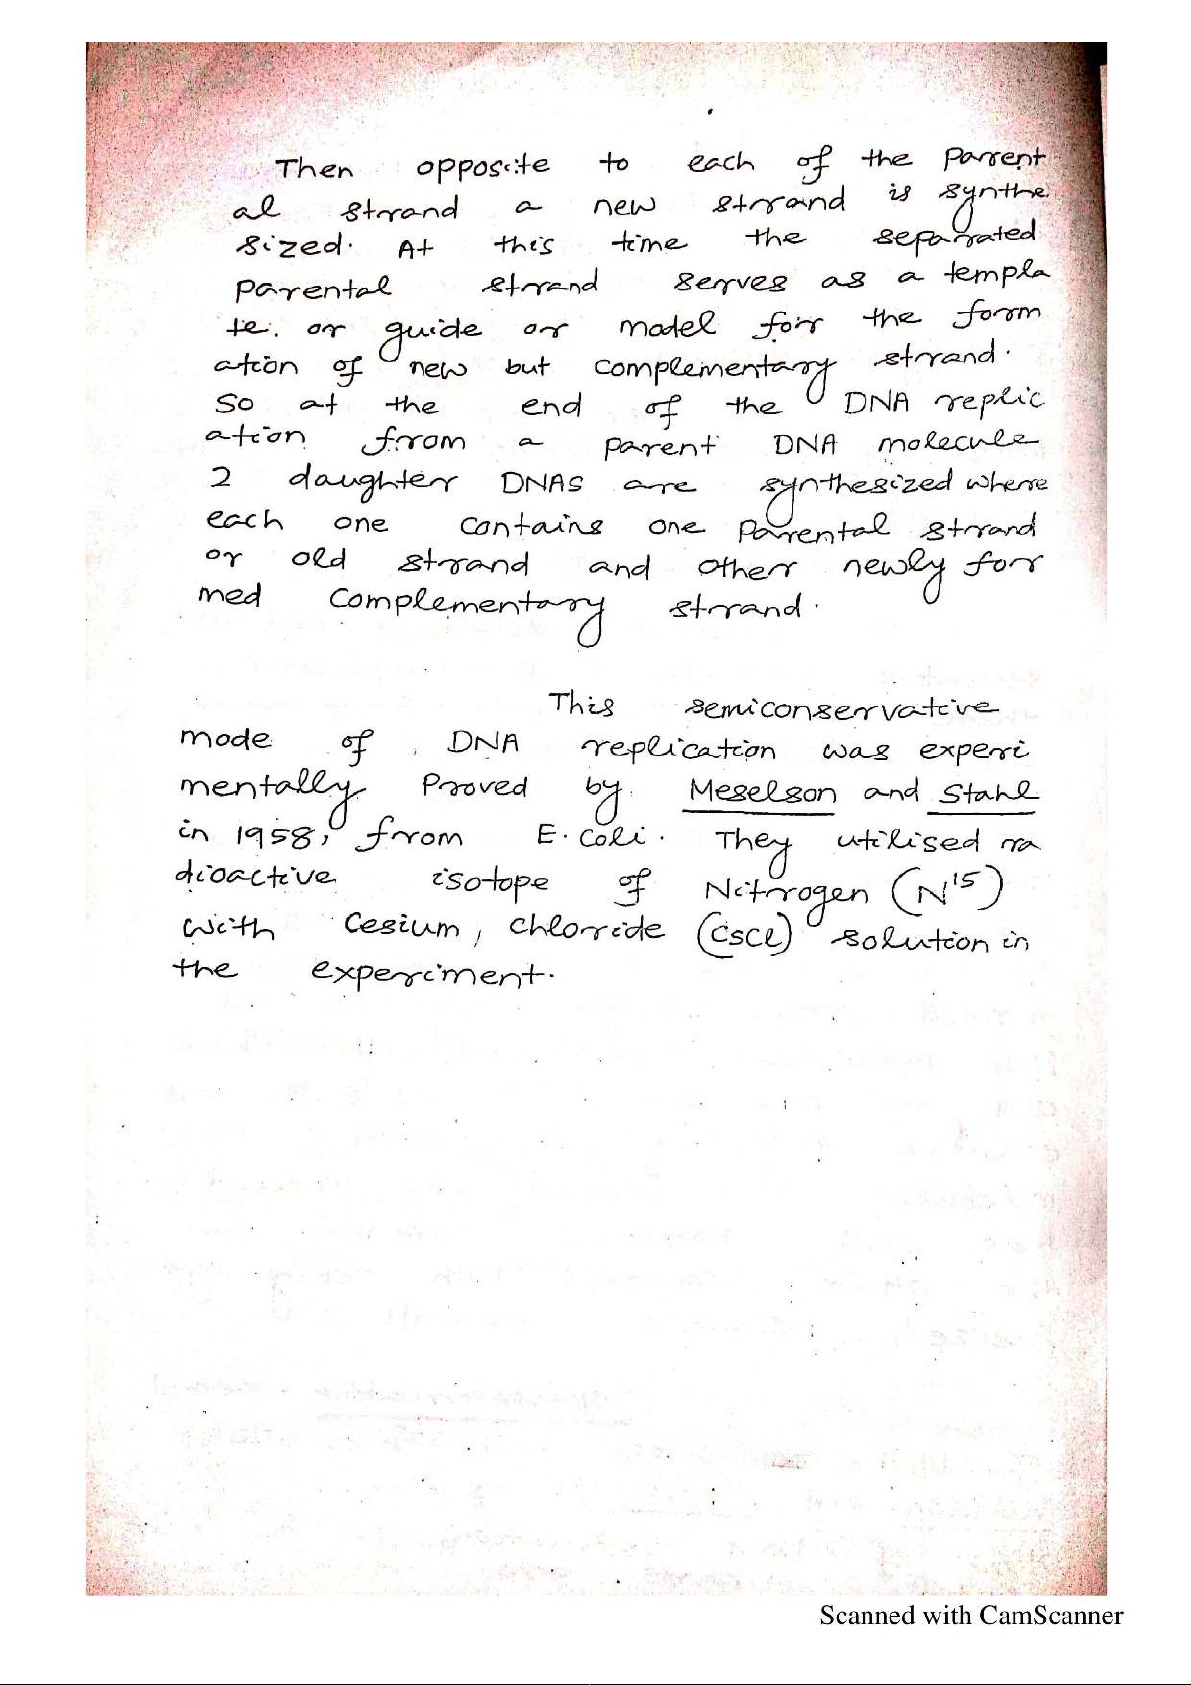 Then opposite to each of the parent
al strand a new strand is synthe
sized. At this time the separated
parental strand serves as a templa
te. or guide or model for the form
ation of new but complementary strand.
So at the end of the DNA replic
ation from a parent DNA molecule
2 daughter DNAS are synthesized where
each one contains one Parental strand
or old strand and other newly for
med complementary strand.
This semiconservative
mode of DNA replication was experi
mentally Proved by Meselson and Stahl
in 1958, from E. Coli. They utilised ra
dioactive isotope of Nitrogen (N¹⁵)
with Cesium, chloride (CSCl) solution in
the experiment.
Scanned with CamScanner